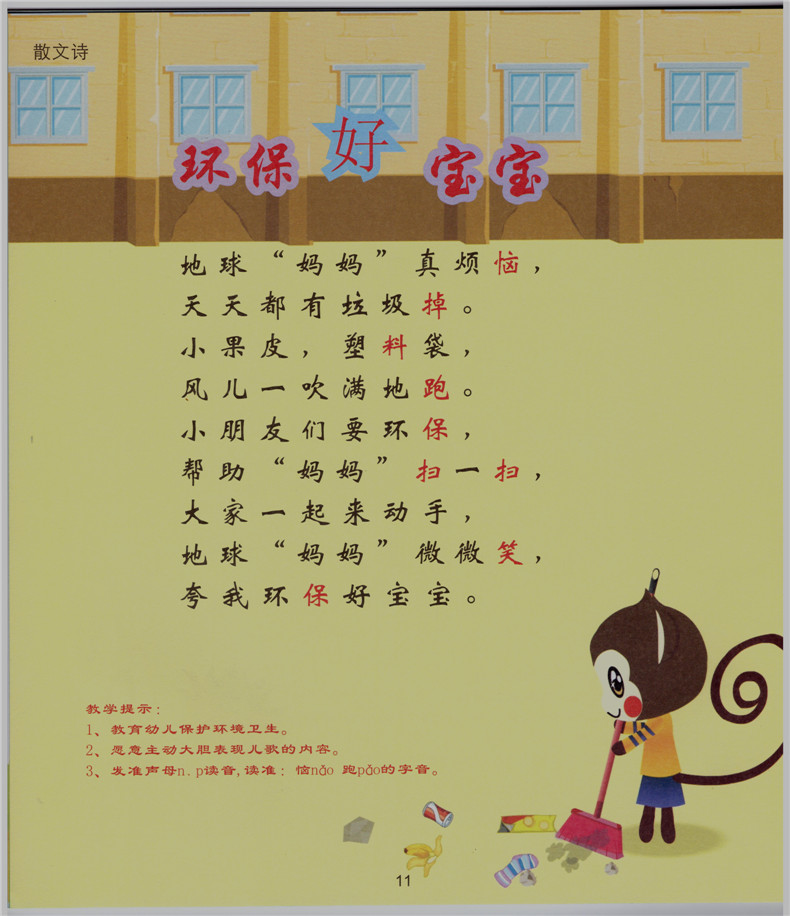 散文诗
环保好宝宝
地球“妈妈”真烦恼，
天天都有垃圾掉。
小果皮，塑料袋，
风儿一吹满地跑。
小朋友们要环保，
帮助“妈妈”扫一扫，
大家一起来动手，
地球“妈妈”微微笑，
夸我环保好宝宝。
教学提示：
1、教育幼儿保护环境卫生。
2、愿意主动大胆表现儿歌的内容。
3、发准声母n.p读音,读准：恼nǎo 跑pǎo的字音。
11